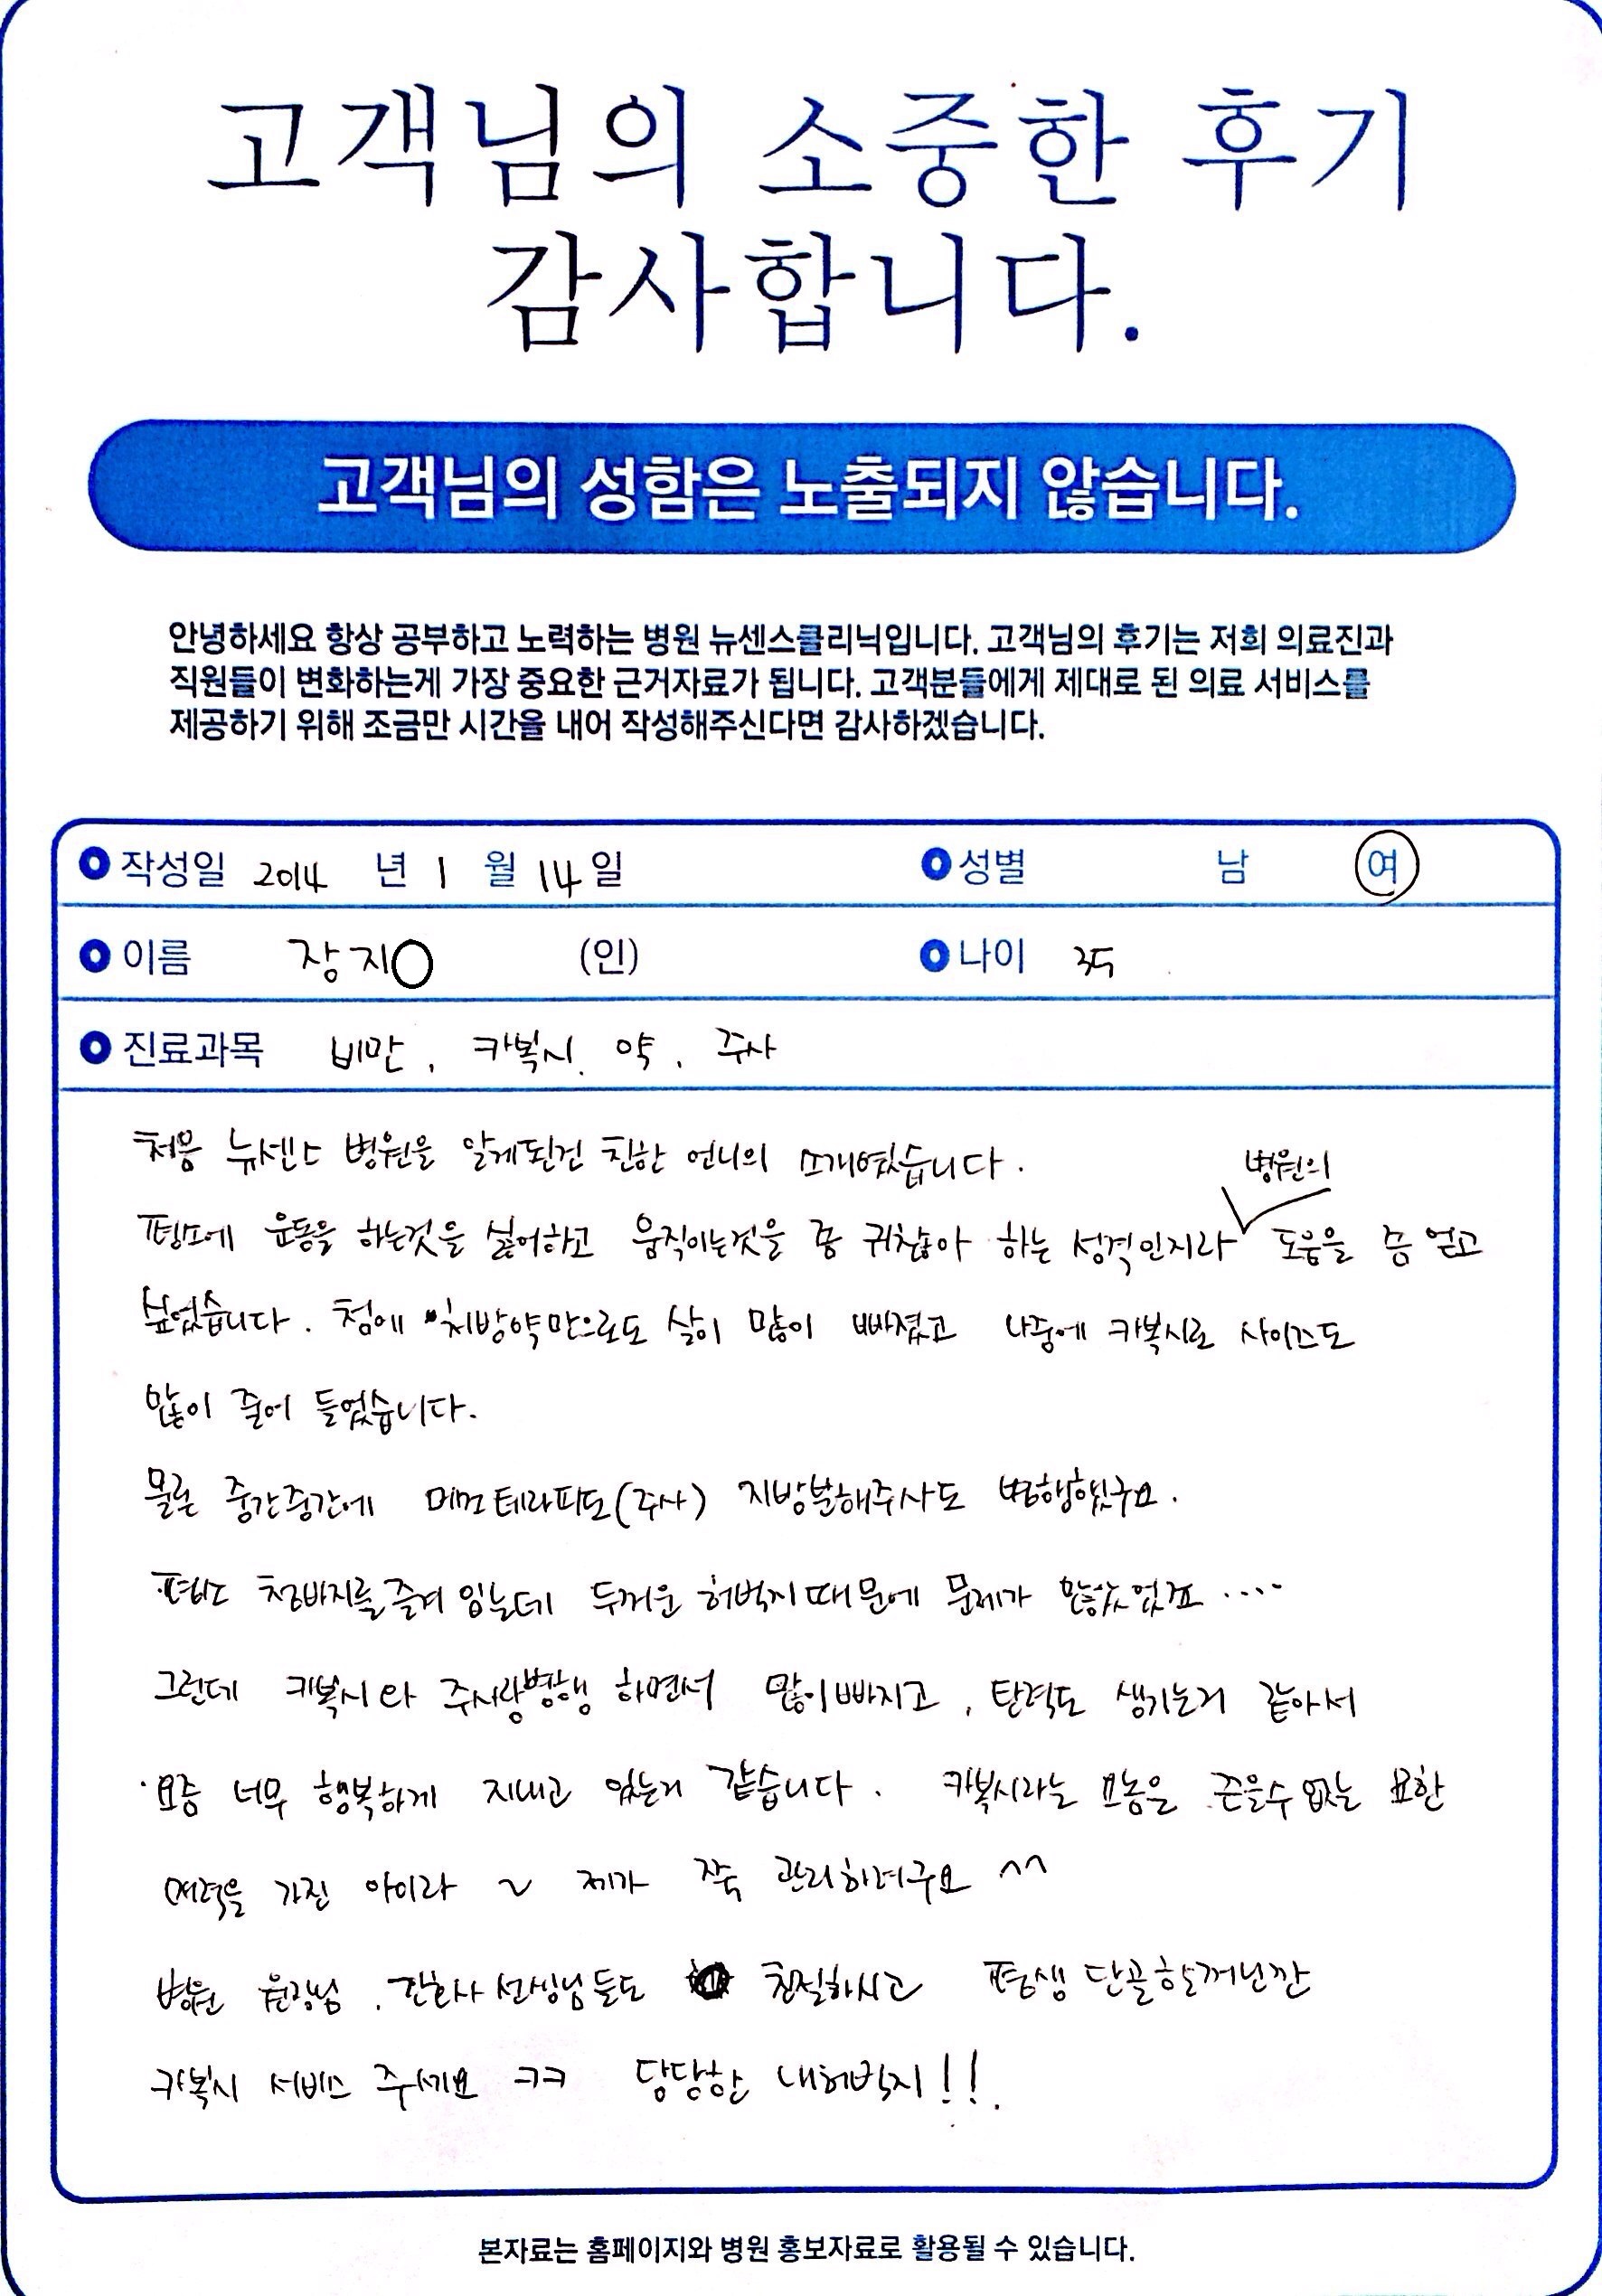 고객님의 소중한 후기
감사합니다.
고객님의 성함은 노출되지 않습니다.
안녕하세요 항상 공부하고 노력하는 병원 뉴센스클리닉입니다. 고객님의 후기는 저희 의료진과
직원들이 변화하는게 가장 중요한 근거자료가 됩니다. 고객분들에게 제대로 된 의료 서비스를
제공하기 위해 조금만 시간을 내어 작성해주신다면 감사하겠습니다.
작성일 2014 년 1 월 14 일 성별 남 여
이름 장지○ (인) 나이 35
진료과목 비만, 카복시, 약, 주사
처음 뉴센스 병원을 알게된건 친한 언니의 소개였습니다.
병원의
평소에 운동을 하는것을 싫어하고 움직이는것을 좀 귀찮아 하는 성격인지라 도움을 좀 얻고
싶었습니다. 첨에 처방약만으로도 살이 많이 빠졌고 나중에 카복시로 사이즈도
많이 줄어 들었습니다.
물론 중간중간에 메조테라피도(주사) 지방분해주사도 병행했구요.
평소 청바지를 즐겨 입는데 두꺼운 허벅지 때문에 문제가 많았었죠 ....
그런데 카복시와 주사랑병행 하면서 많이빠지고, 탄력도 생기는거 같아서
요즘 너무 행복하게 지내고 있는거 같습니다. 카복시라는 요놈은 끈을수 없는 묘한
매력을 가진 아이라 ~ 제가 쭉 관리하려구요 ^^
병원 원장님, 간호사 선생님들도 친절하시고 평생 단골할꺼닌깐
카복시 서비스 주세요 ㅋㅋ 당당한 내허벅지!!.
본자료는 홈페이지와 병원 홍보자료로 활용될 수 있습니다.